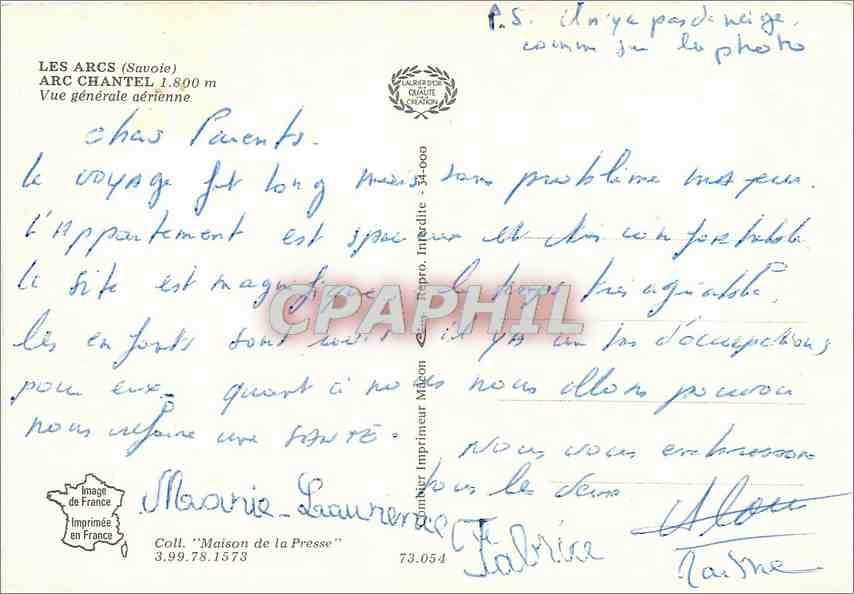 P.S. il n'y a pas de neige
comme sur la photo
LES ARCS (Savoie)
ARC CHANTEL 1.800 m
Vue générale aérienne
LAURIER D'OR
DE LA
QUALITÉ
CRÉATION
chers Parents.
le voyage fut long mais sans problème majeur.
L'Appartement est spacieux et très confortable
le site est magnifique le temps très agréable.
les enfants sont ravis il y a un tas d'occupations
pour eux. quant à nous nous allons pouvoir
nous refaire une SANTÉ.
Nous vous embrassons
tous les deux
Marie-Laurence
Fabrice
Combier Imprimeur Macon
Repro. Interdite - 34-000
CPAPHIL
Image
de France
Imprimée
en France
Coll. "Maison de la Presse"
3.99.78.1573
73.054